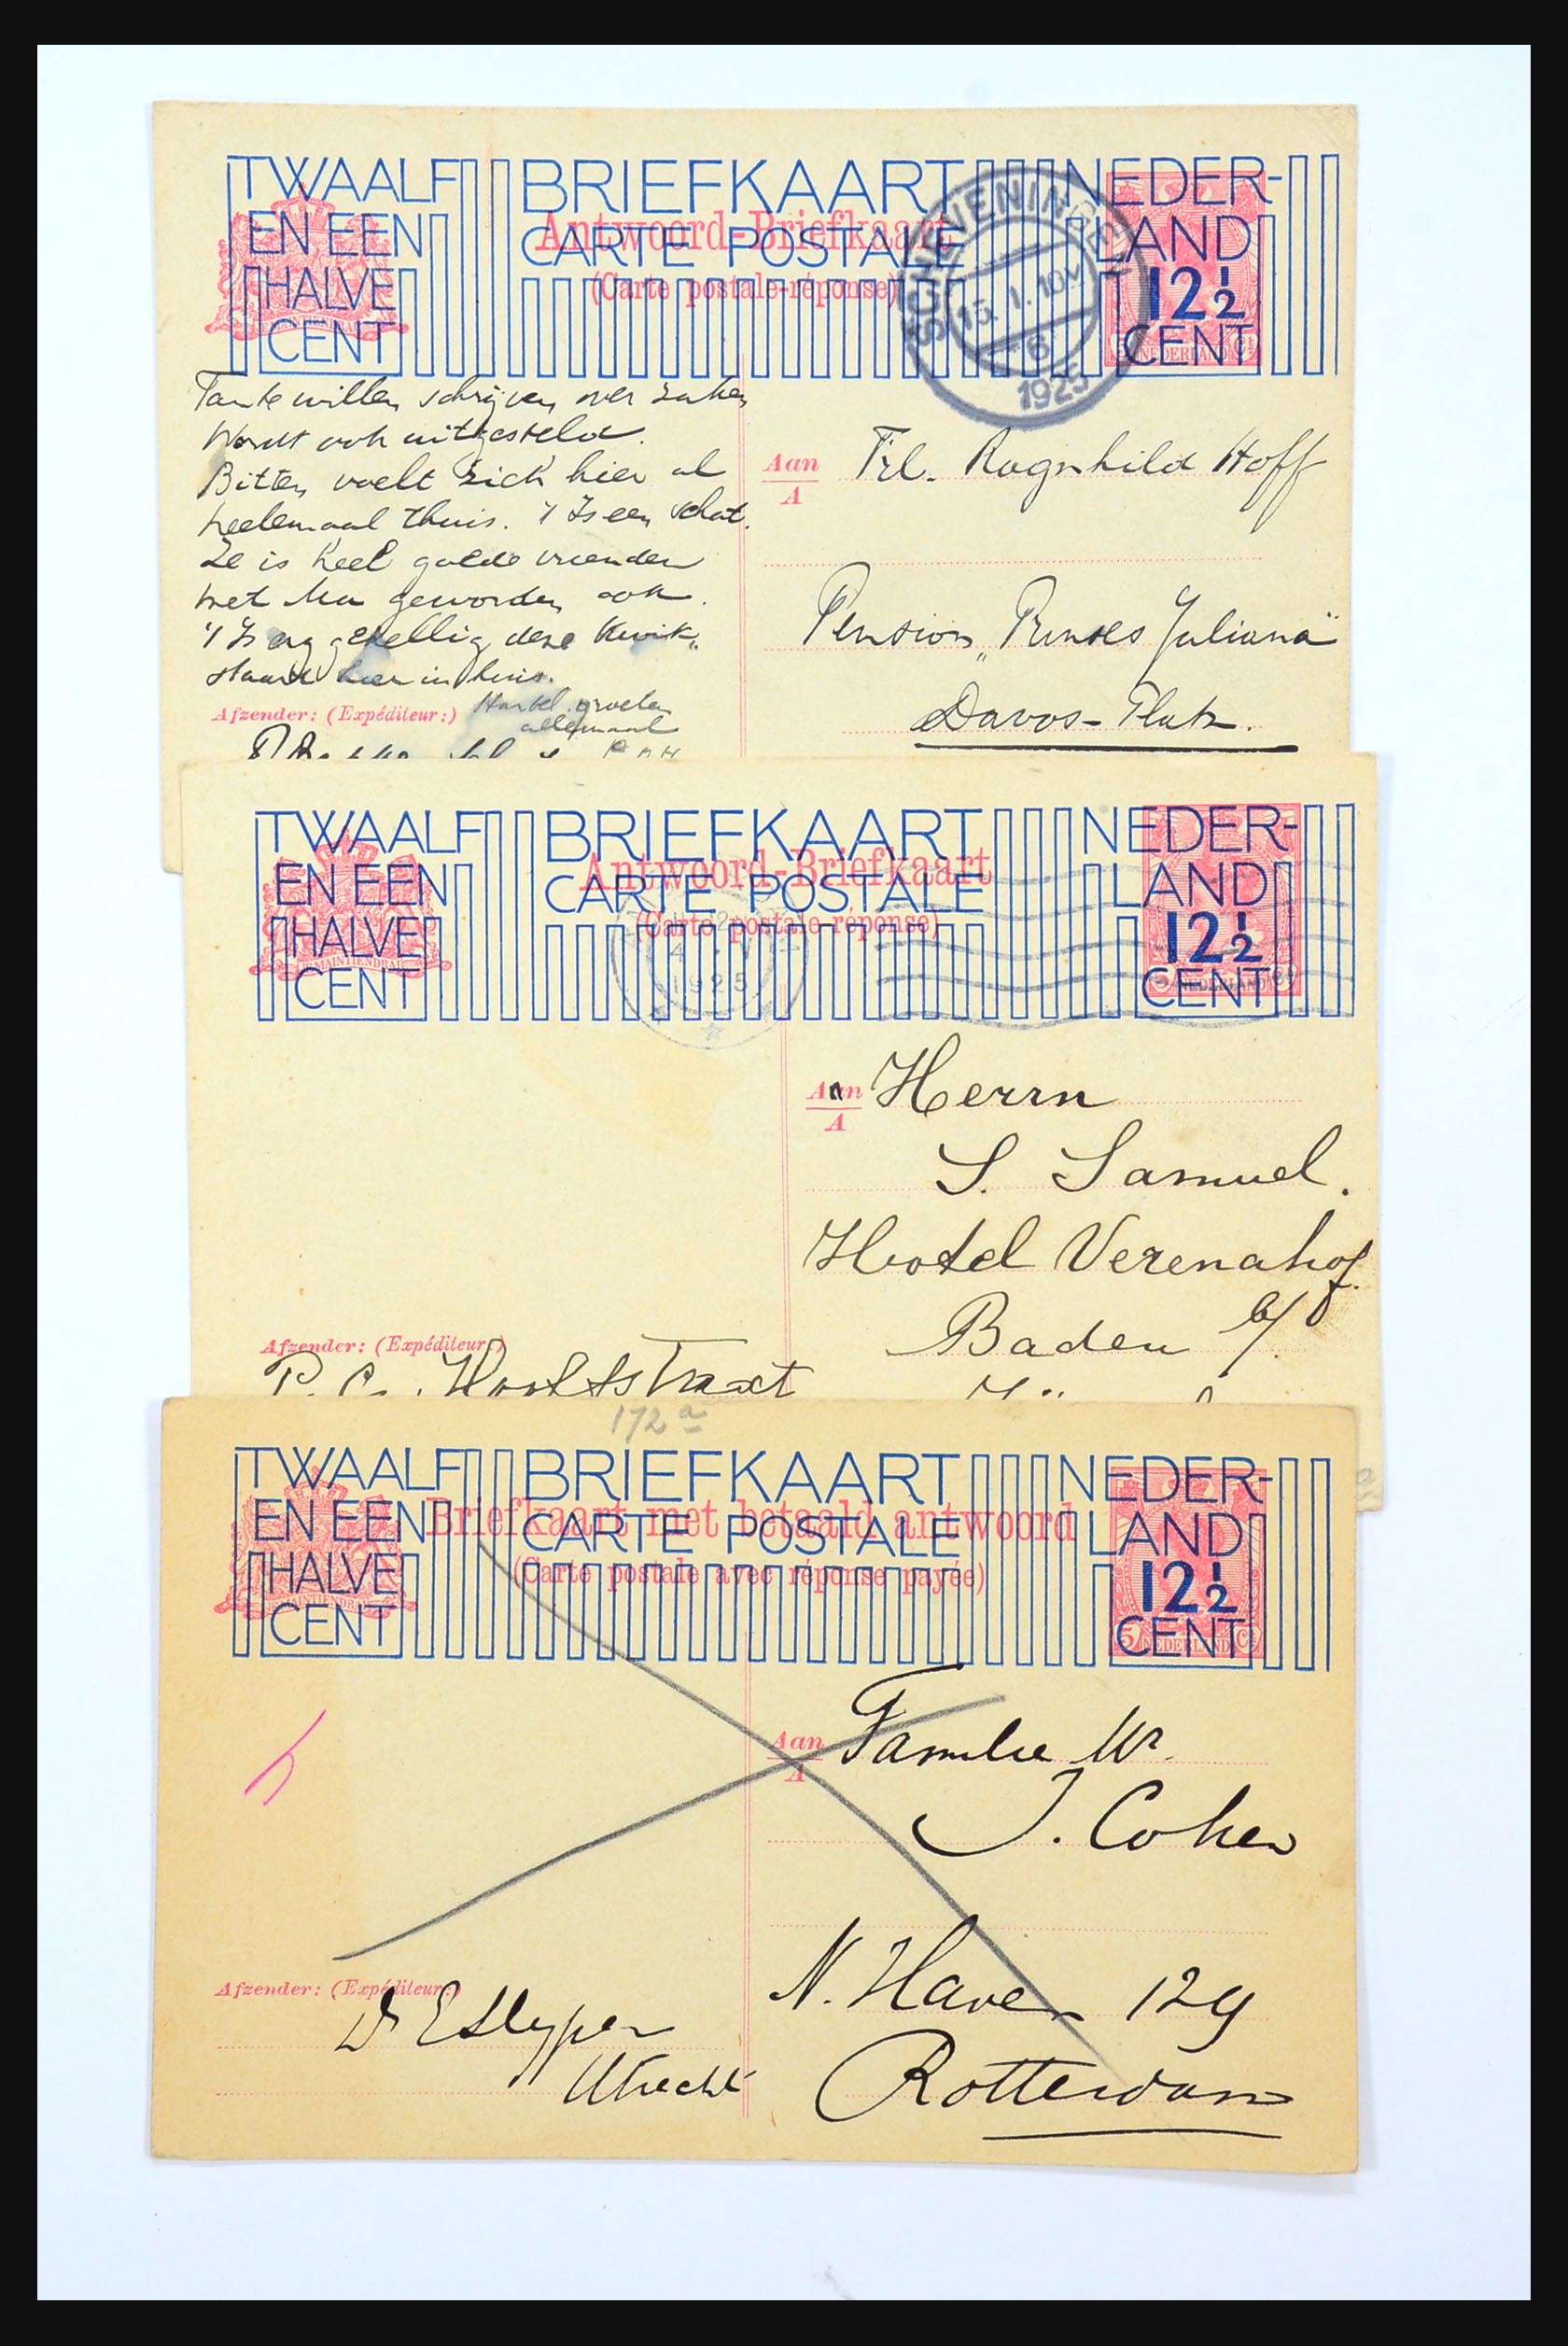 TWAALF
EN EEN
HALVE
CENT
BRIEFKAART
CARTE POSTALE
Antwoord-Briefkaart
(Carte postale-réponse)
NEDER-
LAND
12½
CENT
NEDERLAND
SCHEVENINGEN
15.1.10V
6
1925
Tante willen schrijven over zaken
Wordt ook uitgesteld.
Bitten voelt zich hier al
heelemaal thuis. 't Is een schat.
Ze is heel goede vrienden
met Ma geworden ook.
't Is erg gezellig deze Kwik-
staart hier in huis.
Hartel. groeten
allemaal
Afzender: (Expéditeur:)
Aan
A
Frl. Ragnhild Hoff
Pension „Prinses Juliana"
Davos-Platz.
TWAALF
EN EEN
HALVE
CENT
JE MAINTIENDRAI
BRIEFKAART
CARTE POSTALE
Antwoord-Briefkaart
(Carte postale-réponse)
1925
NEDER-
LAND
12½
CENT
NEDERLAND
Aan
A
Herrn
S. Samuel.
Hotel Verenahof.
Baden b/
Afzender: (Expéditeur:)
P. C. Hooftstraat
172 a
TWAALF
EN EEN
HALVE
CENT
BRIEFKAART
CARTE POSTALE
Briefkaart met betaald antwoord
(Carte postale avec réponse payée)
NEDER-
LAND
12½
CENT
5 NEDERLAND Ct
Aan
A
Familie W.
J. Cohen
N. Haven 129
Rotterdam
Afzender: (Expéditeur:)
Dr E Slyper
Utrecht